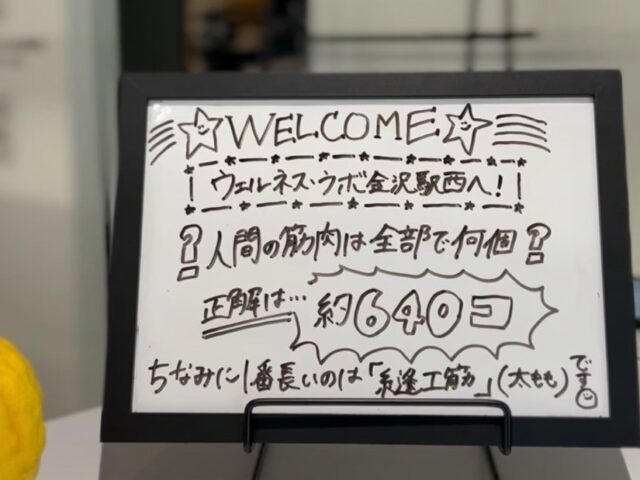 WELCOME
ウェルネス・ラボ金沢駅西へ!
?人間の筋肉は全部で何個?
正解は…約640コ
ちなみに1番長いのは「縫工筋」(太もも)です